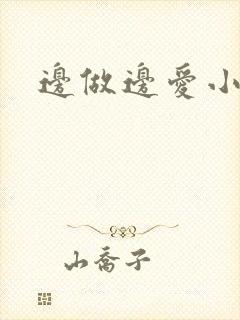 邊做邊愛小
山喬子